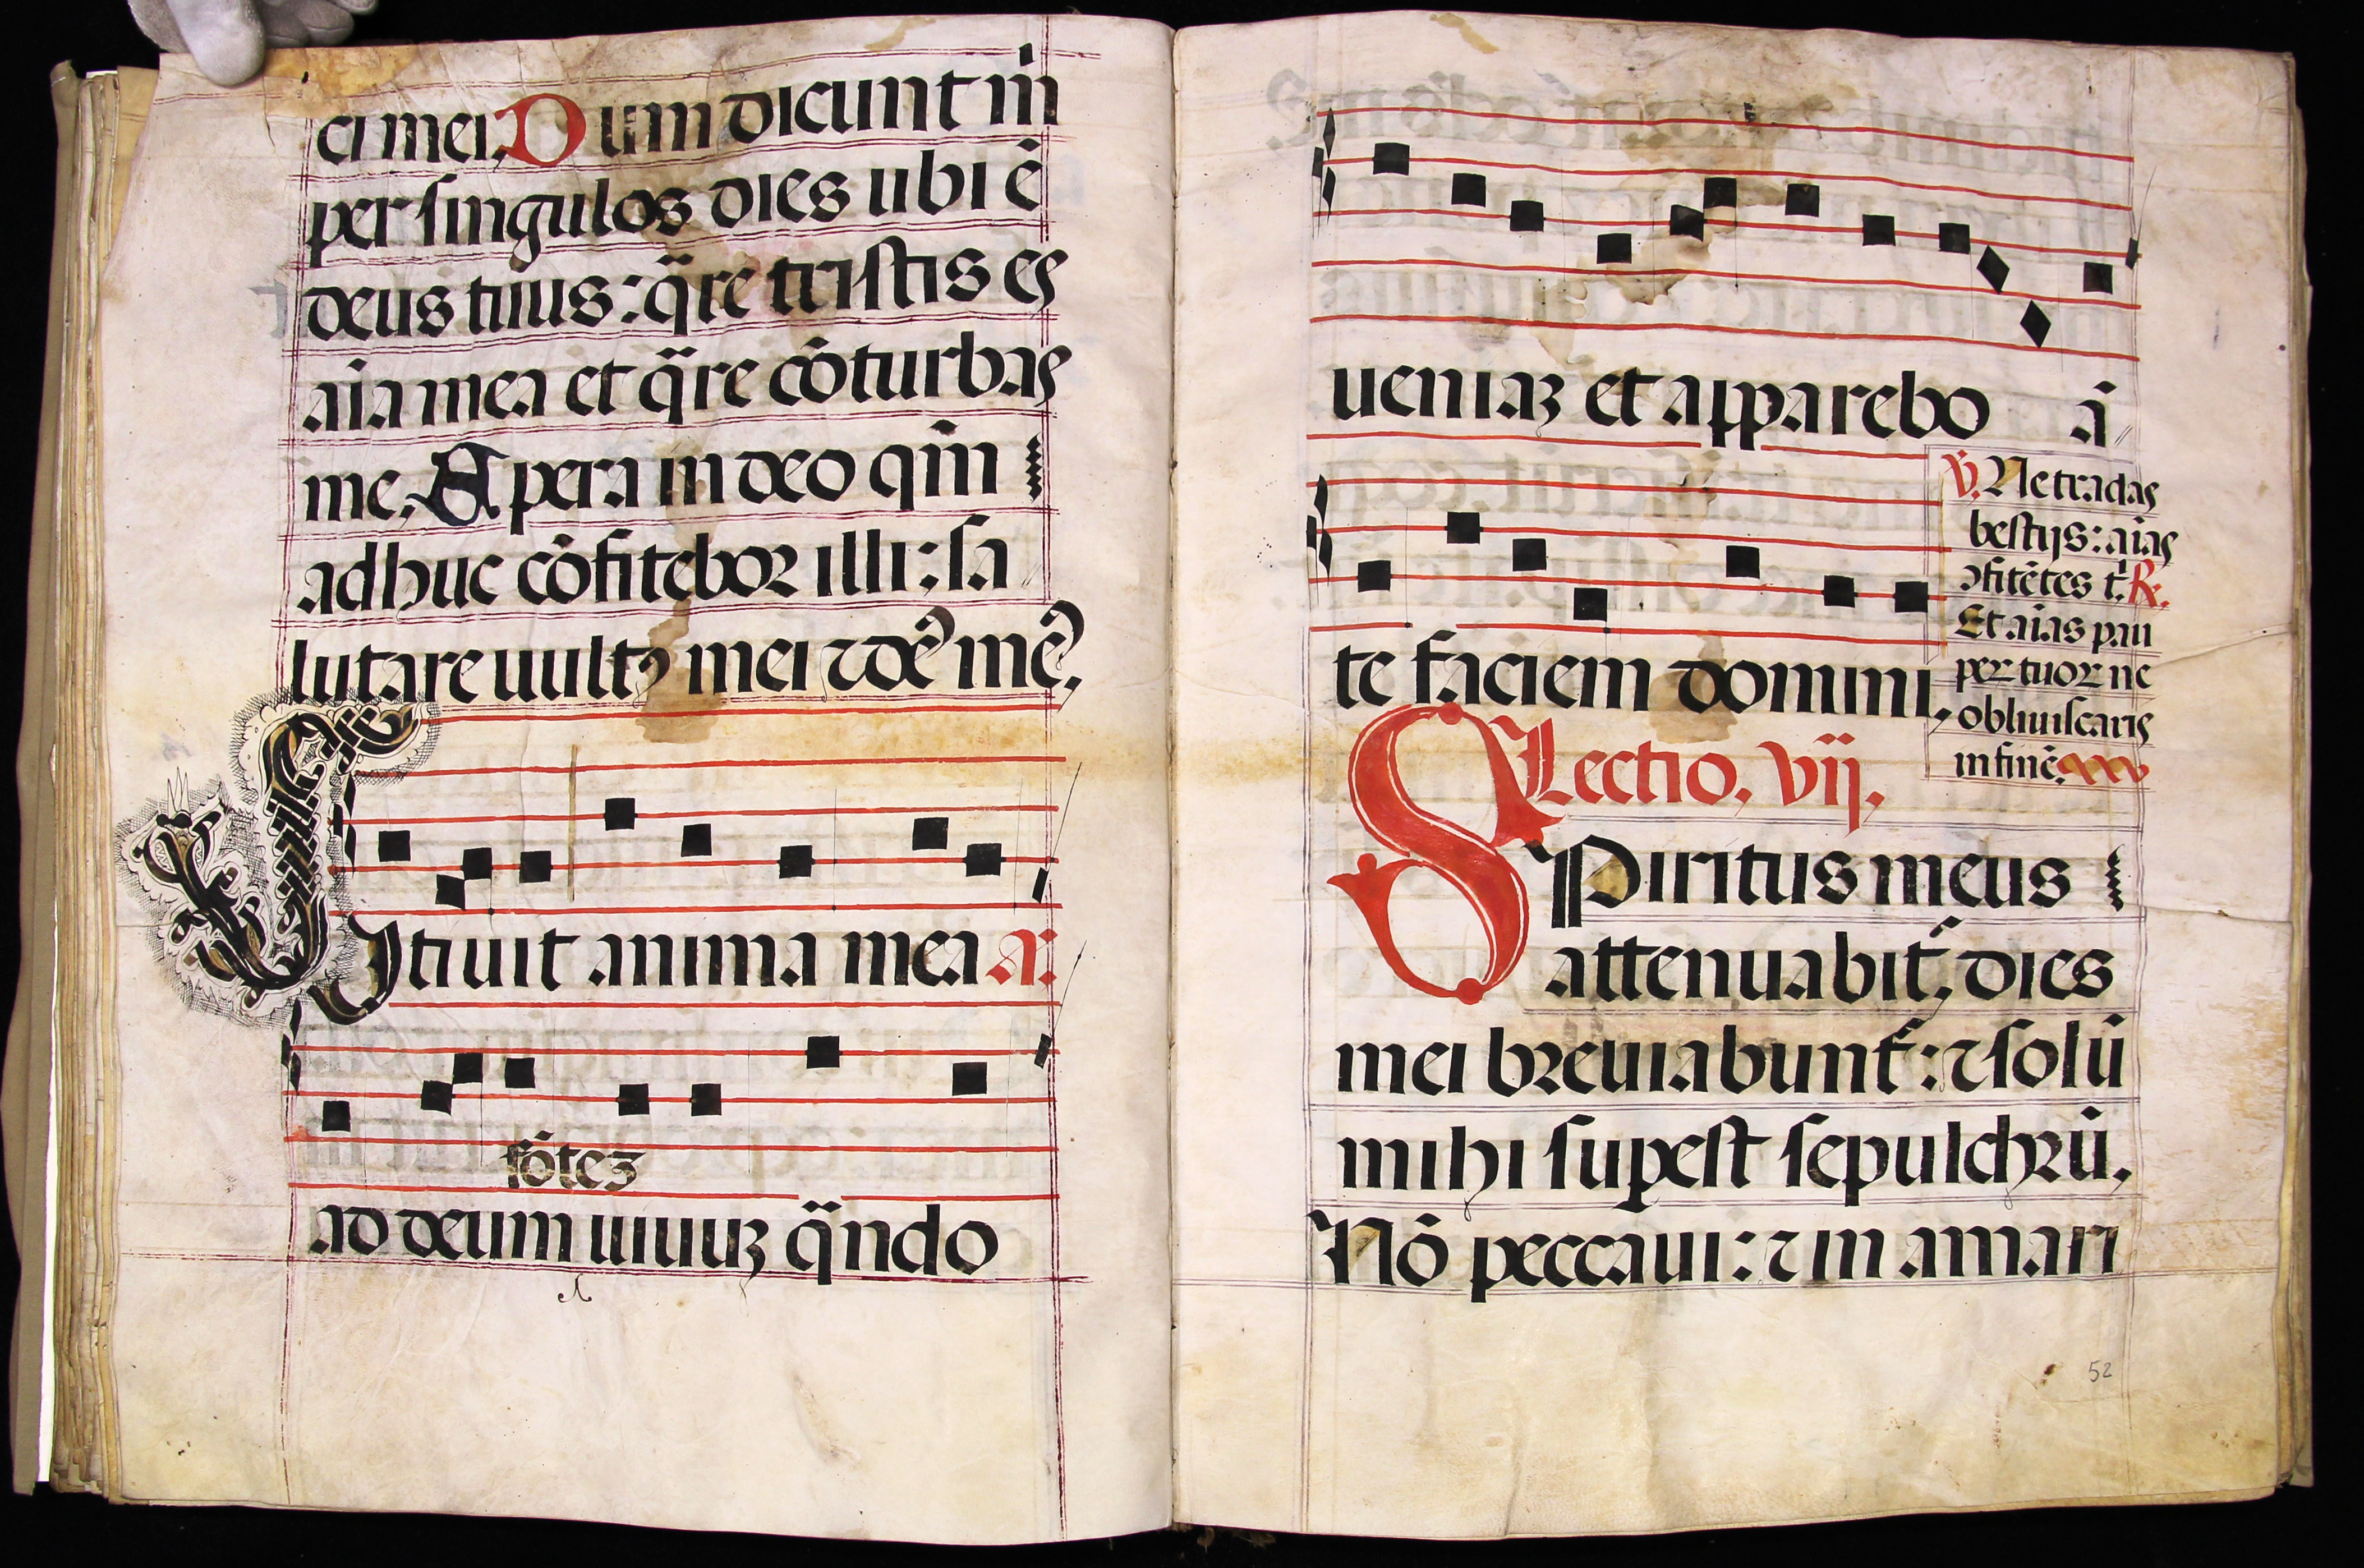 ci mei, Dum dicunt m̄
per singulos dies ubi ē
deus tuus: q̄re tristis es
aīa mea et q̄re cōturbas
me, Spera in deo qm̄
adhuc cōfitebor illi: sa
lutare vultꝰ mei ⁊ dē mē,
Sitivit anima mea a:
fōteꝫ
ad deum vivuꝫ q̄ndo
veniaꝫ et apparebo ā
te faciem domini,
℣. Ne tradas
bestijs: aīas
ↄfitētes t. ℟.
Et aīas pau
peꝝ tuoꝝ ne
obliviscaris
in finē.
Lectio, vij,
Spiritus meus
attenuabit̄, dies
mei breviabunt̄: ⁊ solū
mihi suꝑest sepulchrū,
Nō peccavi: ⁊ in amari
52